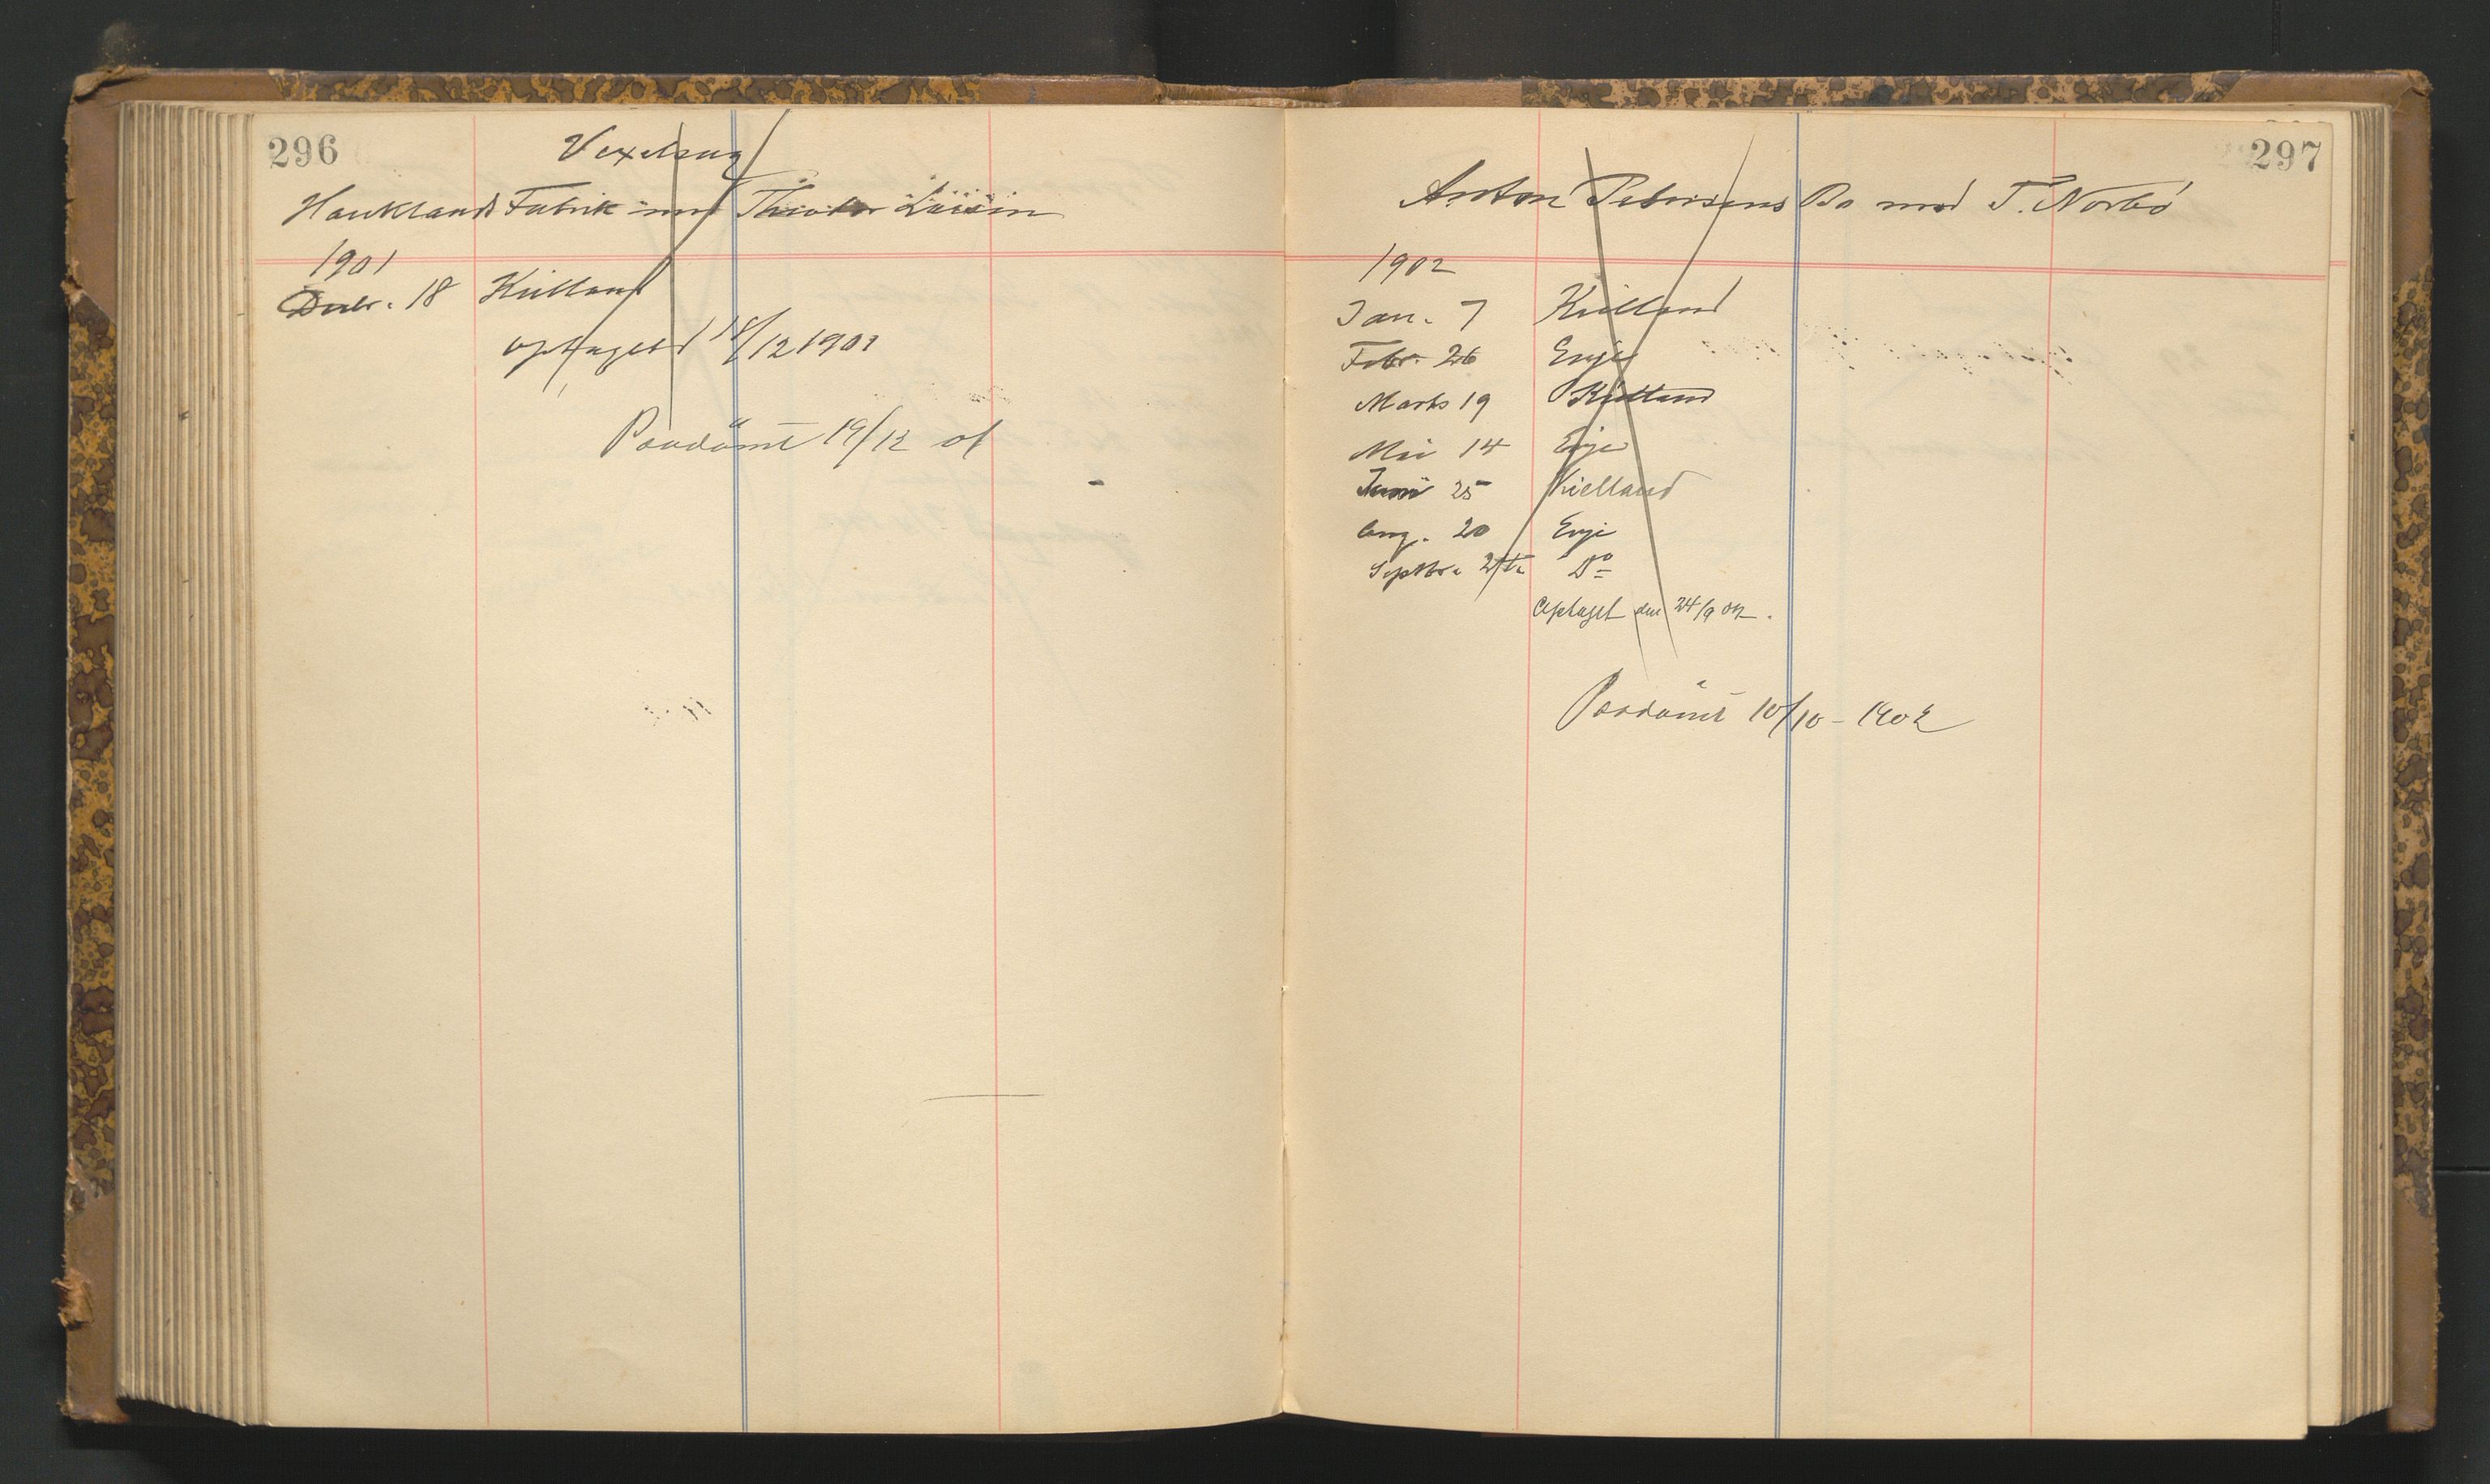 296
Vexelsag
Hauklands Fabrik mod Theodor
1901
Decbr. 18 Kielland
optaget d 18/12 1901
Paadömt 19/12 01
297
Anton Pedersens Bo mod T. Norbö
1902
Jan. 7 Kielland
Febr. 26 Erje
Marts 19 Kielland
Mai 14 Erje
Juni 25 Kielland
Aug. 20 Erje
Septbr. 24de Do
Optaget den 24/9 02.
Paadömt 10/10 - 1902